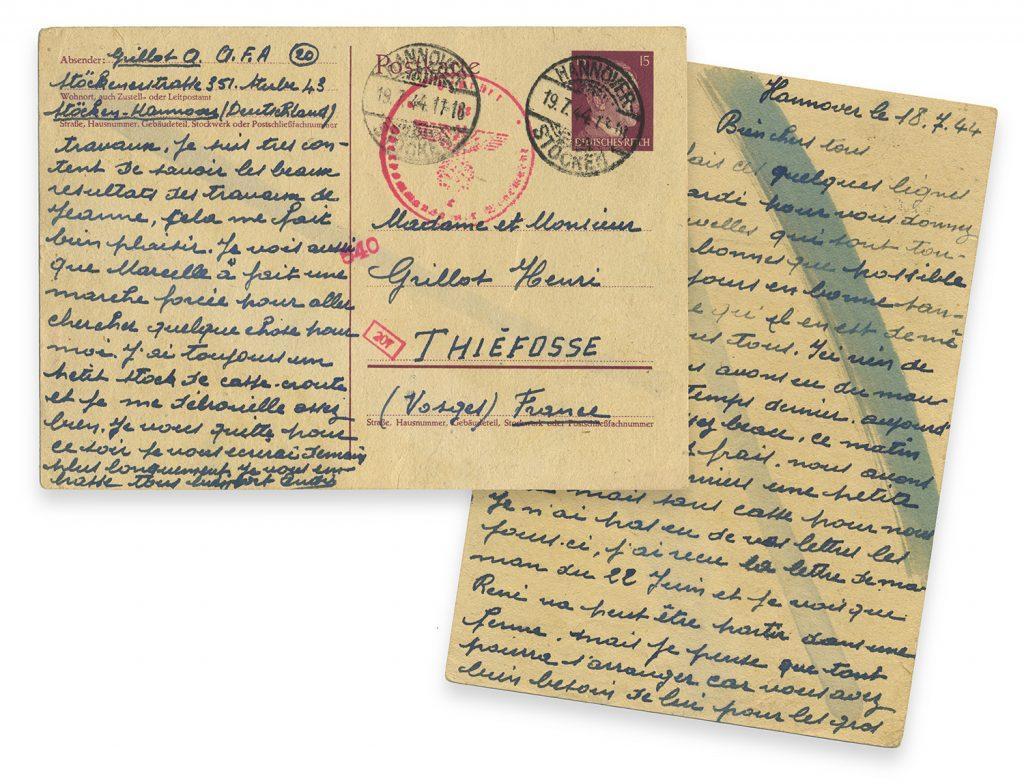 Absender: Grillot A. A.F.A (20)
Stöckenerstrasse 351. Stube 43
Wohnort, auch Zustell- oder Leitpostamt
Stöcken-Hannover (Deutschland)
Straße, Hausnummer, Gebäudeteil, Stockwerk oder Postschließfachnummer
travaux. Je suis très con-
tent de savoir les beaux
résultats des travaux de
Jeanne, cela me fait
bien plaisir. Je vois aussi
que Marcelle à fait une
marche forcée pour aller
chercher quelque chose pour
moi. J'ai toujours un
petit stock de casse-croute
et je me débrouille assez
bien. Je vous quitte pour
ce soir je vous écrirai demain
plus longuement. Je vous em-
brasse tous bien fort André
Postkarte
HANNOVER
19.7.44.17-18
STÖCKEN
HANNOVER
19.7.44.17-18
STÖCKEN
15
DEUTSCHES REICH
Oberkommando der Wehrmacht
540
207
Madame et Monsieur
Grillot Henri
THIÉFOSSE
(Vosges) France
Straße, Hausnummer, Gebäudeteil, Stockwerk oder Postschließfachnummer
Hannover le 18.7.44
Bien chers tous
quelques lignes
mardi pour vous donner
nouvelles qui sont tou-
bonnes que possible
jours en bonne san-
qu'il en est de mê
vous tous. Ici rien de
avons eu du mau-
temps dernier, aujourd
assez beau, ce matin
frais, nous avons
une petite
mais sans casse pour nous
Je n'ai pas eu de vos lettres les
jours-ci, j'ai reçu la lettre de ma-
man du 22 Juin et je vois que
René va peut être partir dans une
ferme, mais je pense que tout
pourra s'arranger car vous avez
bien besoin de lui pour les gros